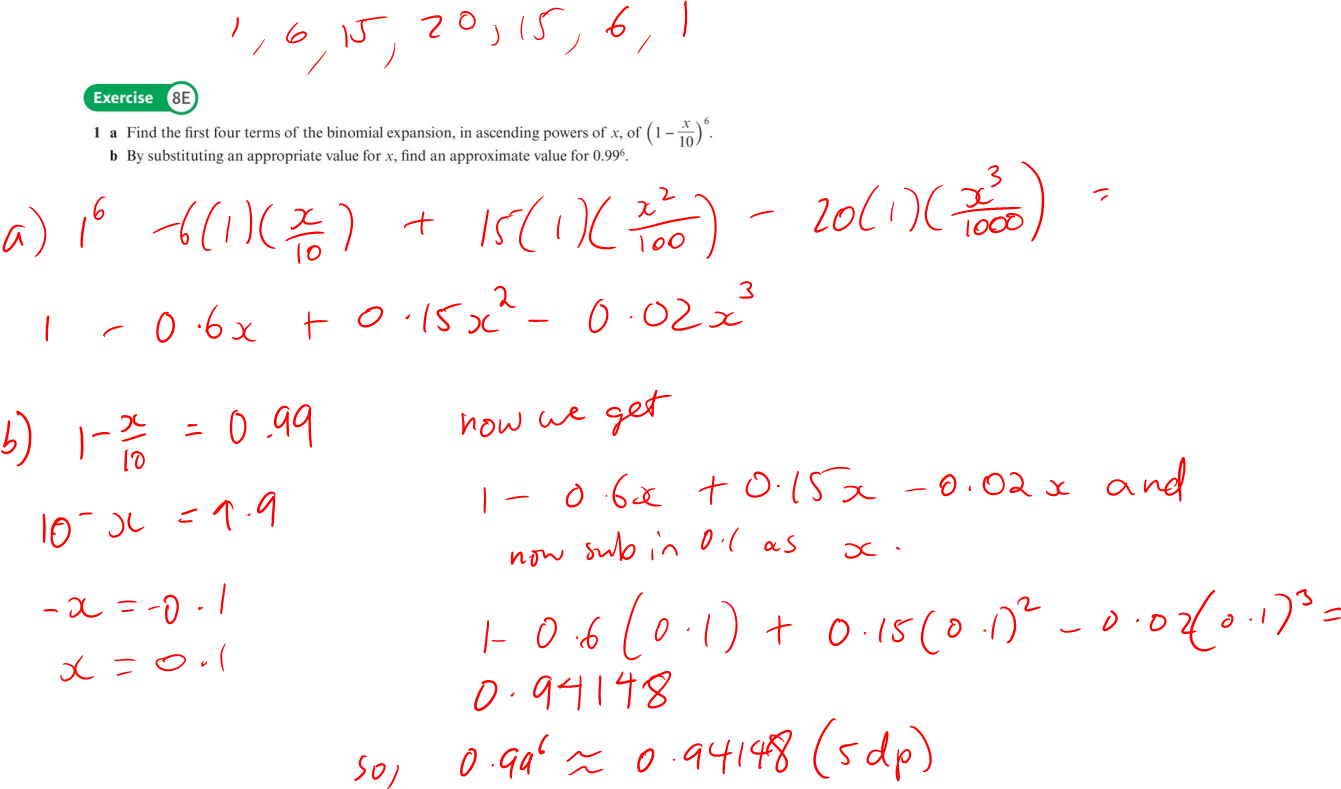 1, 6, 15, 20, 15, 6, 1
Exercise 8E
1 a Find the first four terms of the binomial expansion, in ascending powers of x, of (1 − x/10)⁶.
b By substituting an appropriate value for x, find an approximate value for 0.99⁶.
a) 1⁶ -6(1)(x/10) + 15(1)(x²/100) - 20(1)(x³/1000) =
1 - 0.6x + 0.15x² - 0.02x³
b) 1 - x/10 = 0.99
10 - x = 9.9
-x = -0.1
x = 0.1
now we get
1 - 0.6x + 0.15x - 0.02x and
now sub in 0.1 as x.
1 - 0.6(0.1) + 0.15(0.1)² - 0.02(0.1)³ =
0.94148
so, 0.99⁶ ≈ 0.94148 (5dp)